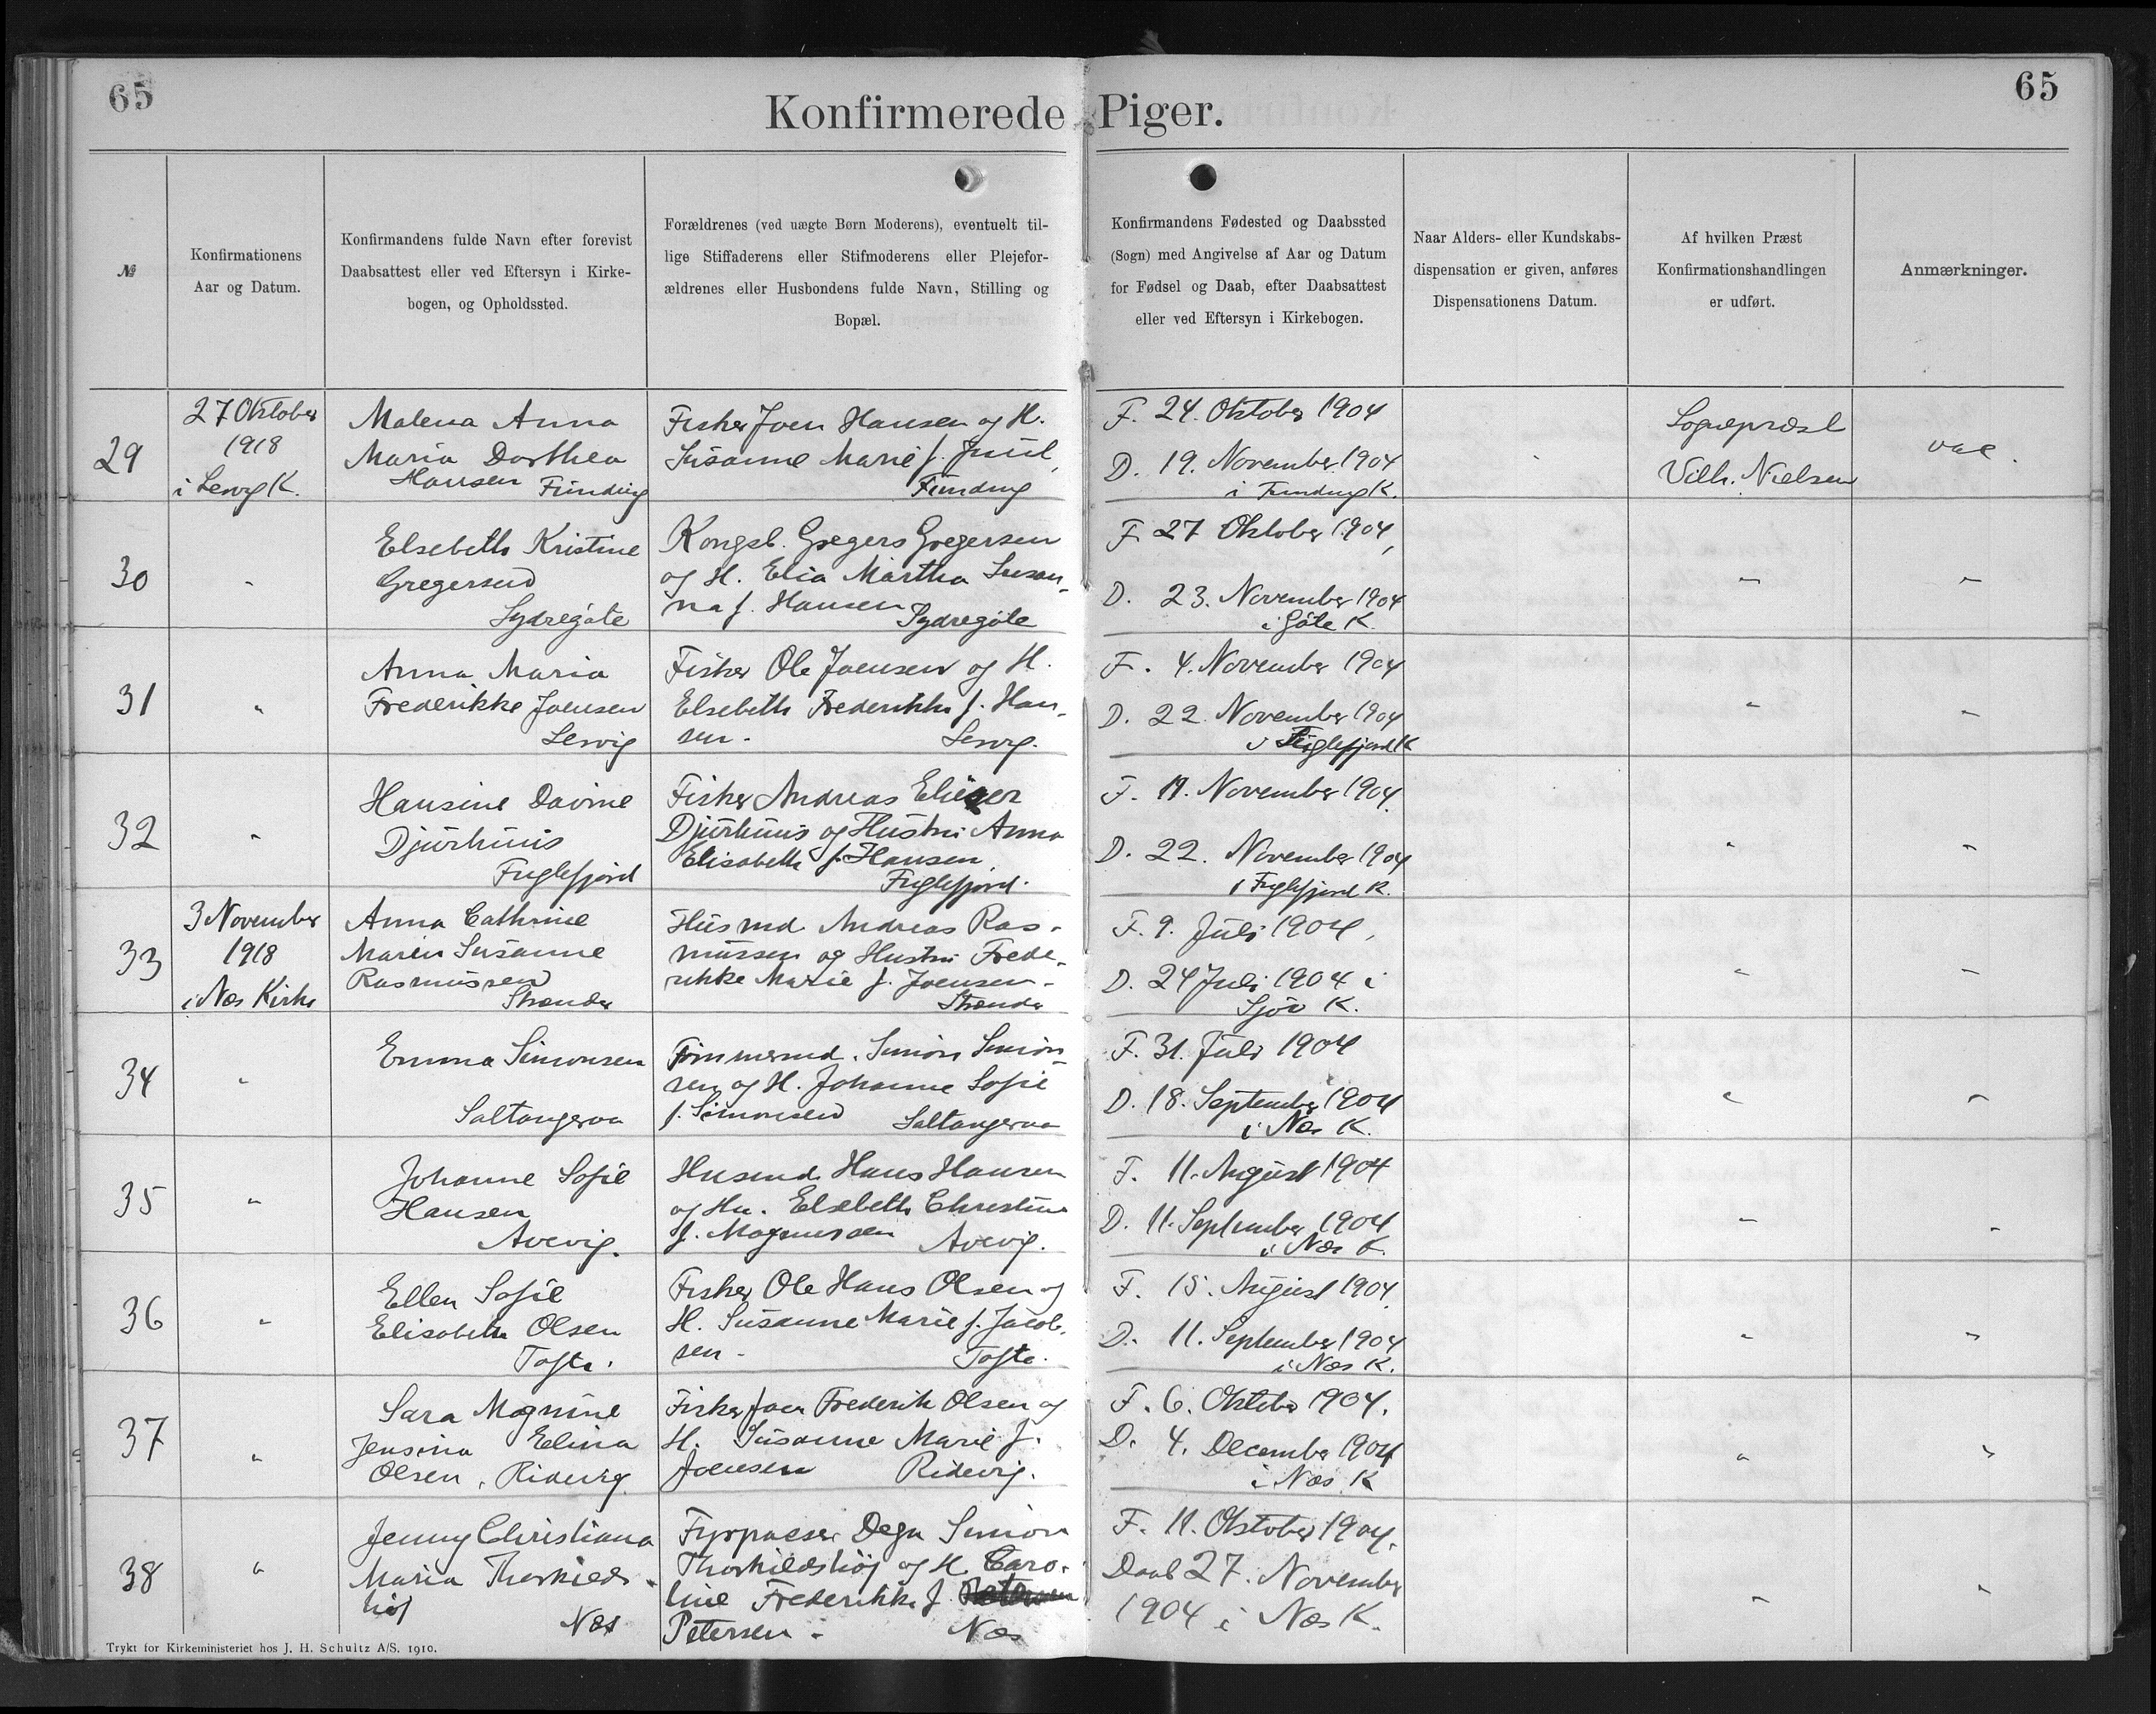 65
65
Konfirmerede Piger.
№
Konfirmationens
Aar og Datum.
Konfirmandens fulde Navn efter forevist
Daabsattest eller ved Eftersyn i Kirke-
bogen, og Opholdssted.
Forældrenes (ved uægte Børn Moderens), eventuelt til-
lige Stiffaderens eller Stifmoderens eller Plejefor-
ældrenes eller Husbondens fulde Navn, Stilling og
Bopæl.
Konfirmandens Fødested og Daabssted
(Sogn) med Angivelse af Aar og Datum
for Fødsel og Daab, efter Daabsattest
eller ved Eftersyn i Kirkebogen.
Naar Alders- eller Kundskabs-
dispensation er given, anføres
Dispensationens Datum.
Af hvilken Præst
Konfirmationshandlingen
er udført.
Anmærkninger.
29
27 Oktober
1918
i Lervig K.
Malena Anna
Maria Dorthea
Hansen Funding
Fisker Joen Hansen og H.
Susanne Marie f. Juul,
Funding
F. 24. Oktober 1904
D. 19. November 1904
i Funding K.
Sognepræst
Vilh. Nielsen
vac.
30
"
Elsebeth Kristine
Gregersen
Sydregöte
Kongsb. Gregers Gregersen
og H. Elia Martha Susan-
na f. Hansen Sydregöte
F 27 Oktober 1904,
D. 23. November 1904
i Göte K.
"
"
31
"
Anna Maria
Frederikke Joensen
Lervig
Fisker Ole Joensen og H.
Elsebeth Frederikke f. Han-
sen. Lervig.
F. 4. November 1904
D. 22. November 1904
i Fuglefjord K
"
"
32
"
Hansine Davine
Djurhuus
Fuglefjord
Fisker Andreas Elieser
Djurhuus og Hustru Anna
Elisabeth f. Hansen
Fuglefjord.
F. 11. November 1904.
D. 22. November 1904
i Fuglefjord K.
"
"
33
3 November
1918
i Næs Kirke
Anna Cathrine
Maren Susanne
Rasmussen
Strender
Husmd. Andreas Ras-
mussen og Hustru Frede-
rikke Marie f. Joensen-
Strender
F. 9. Juli 1904,
D. 24 Juli 1904 i
Sjov K.
"
"
34
"
Emma Simonsen
Saltangeraa
Tømmermd. Simon Simon-
sen og H. Johanne Sofie
f. Simonsen Saltangeraa
F. 31. Juli 1904
D. 18. September 1904
i Næs K.
"
"
35
"
Johanne Sofie
Hansen
Avevig.
Husmd. Hans Hansen
og Hu. Elsebeth Christine
f. Magnussen Avevig.
F. 11. August 1904
D. 11. September 1904
i Næs K.
"
"
36
"
Ellen Sofie
Elisabeth Olsen
Tofte.
Fisker Ole Hans Olsen og
H. Susanne Marie f. Jacob-
sen - Tofte.
F. 15. August 1904.
D. 11. September 1904
i Næs K.
"
"
37
"
Sara Magnine
Jensina Elina
Olsen, Ridevig.
Fisker Joen Frederik Olsen og
H. Susanne Marie f.
Joensen Ridevig.
F. 6. Oktober 1904.
D. 4. December 1904
i Næs K
"
"
38
"
Jenny Christiana
Maria Thorkilds-
høj Næs
Fyrpasser Degn Simon
Thorkildshøj og H. Caro-
line Frederikke f.
Petersen - Næs
F. 11. Oktober 1904.
Daab 27. November
1904 i Næs K.
"
"
Trykt for Kirkeministeriet hos J. H. Schultz A/S. 1910.